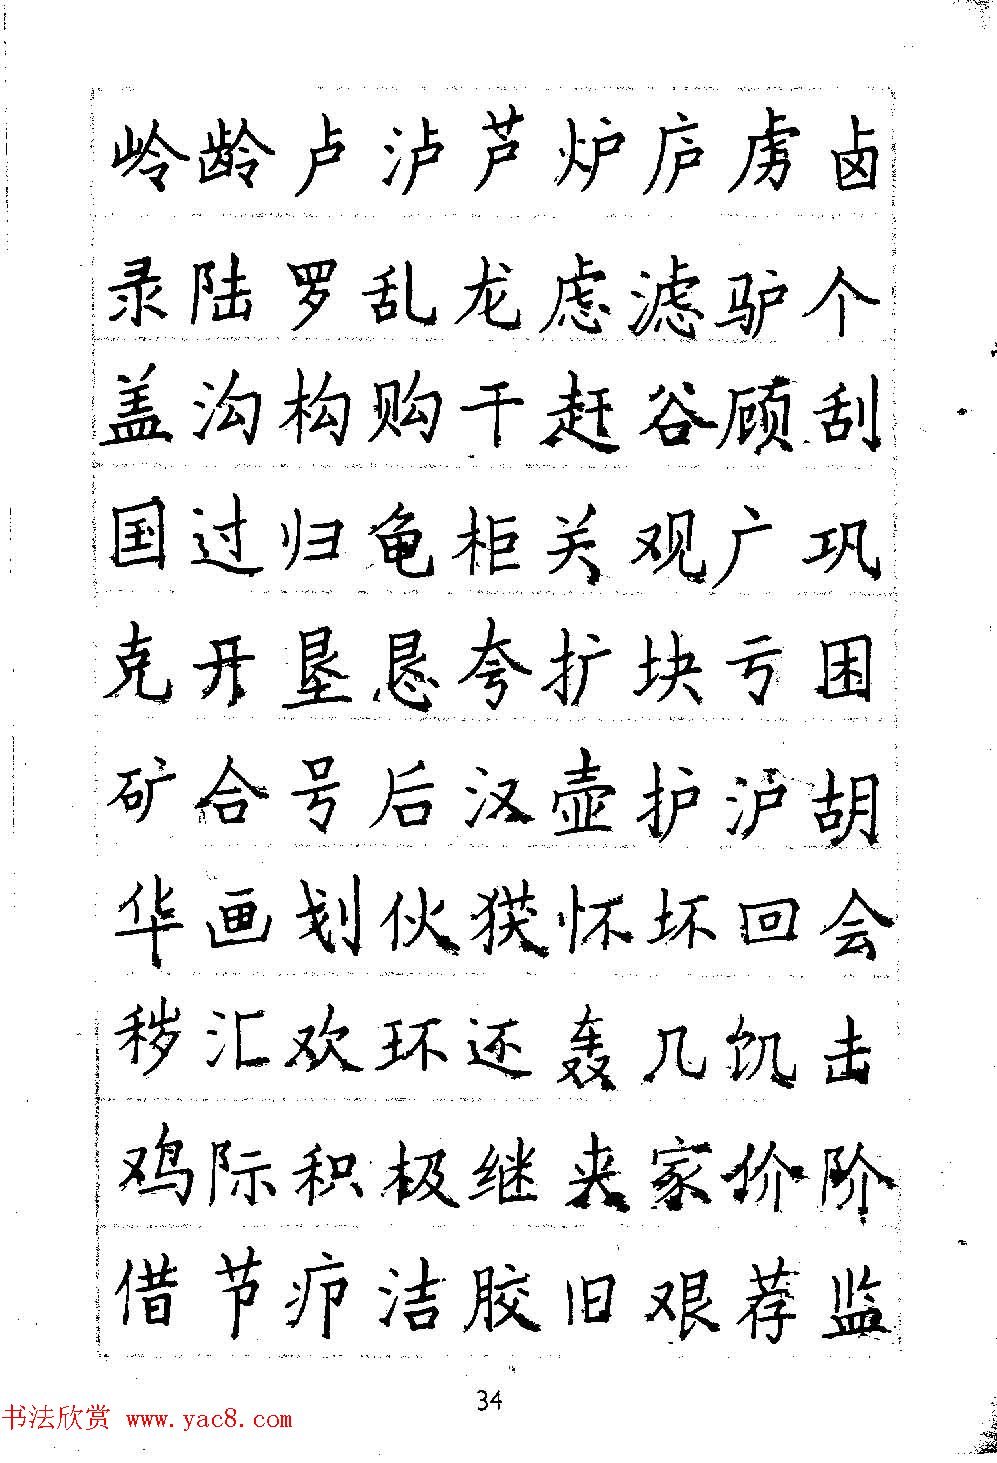 岭龄卢泸芦炉庐虏卤
录陆罗乱龙虑滤驴个
盖沟构购干赶谷顾刮
国过归龟柜关观广巩
克开垦恳夸扩块亏困
矿合号后汉壶护沪胡
华画划伙获怀坏回会
秽汇欢环还轰几饥击
鸡际积极继夹家价阶
借节疖洁胶旧艰荐监
34
书法欣赏 www.yac8.com